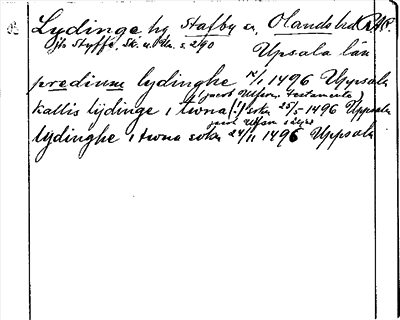 Lydinge by Stafby sn, Olands hd
Jfr Styffe, Sk. u. s. 290 Upsala län
predium lydinghe 1/1 1496 Uppsala
(jacob Ulfson testamente)
kallis lydinge i twna (!) sokn 25/5 1496 Uppsala
jacob Ulfson
lydinghe i twna sokn 24/11 1496 Uppsala